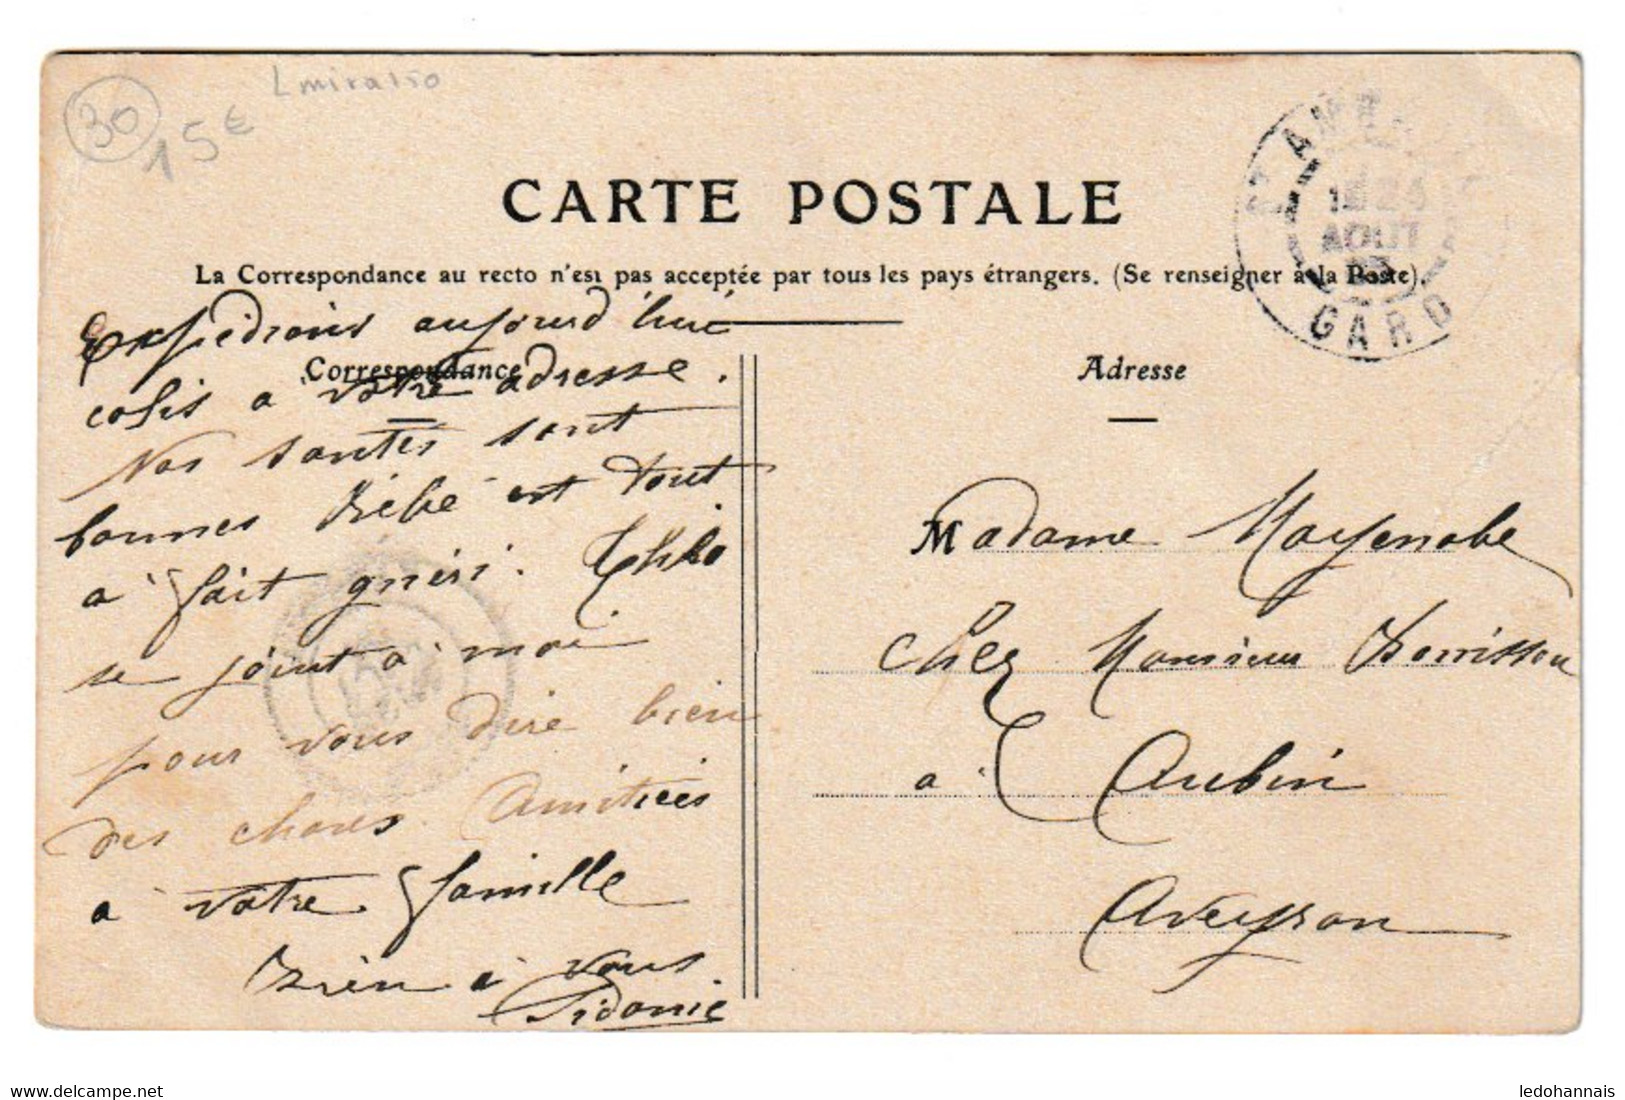 30
15€
CARTE POSTALE
La Correspondance au recto n'est pas acceptée par tous les pays étrangers. (Se renseigner à la Poste).
Correspondance
Expedions aujourd'hui
colis a votre adresse.
Nos santés sont
bonnes Bébé est tout
a fait guéri.
se joint a moi
pour vous dire bien
des choses Amitiées
a votre famille
Bien à vous
Sidonie
Adresse
Madame Mayenobe
Chez Monsieur Borrisson
a Aubin
Aveyron
ST AMB
AOUT
GARD
www.delcampe.net
ledohannais